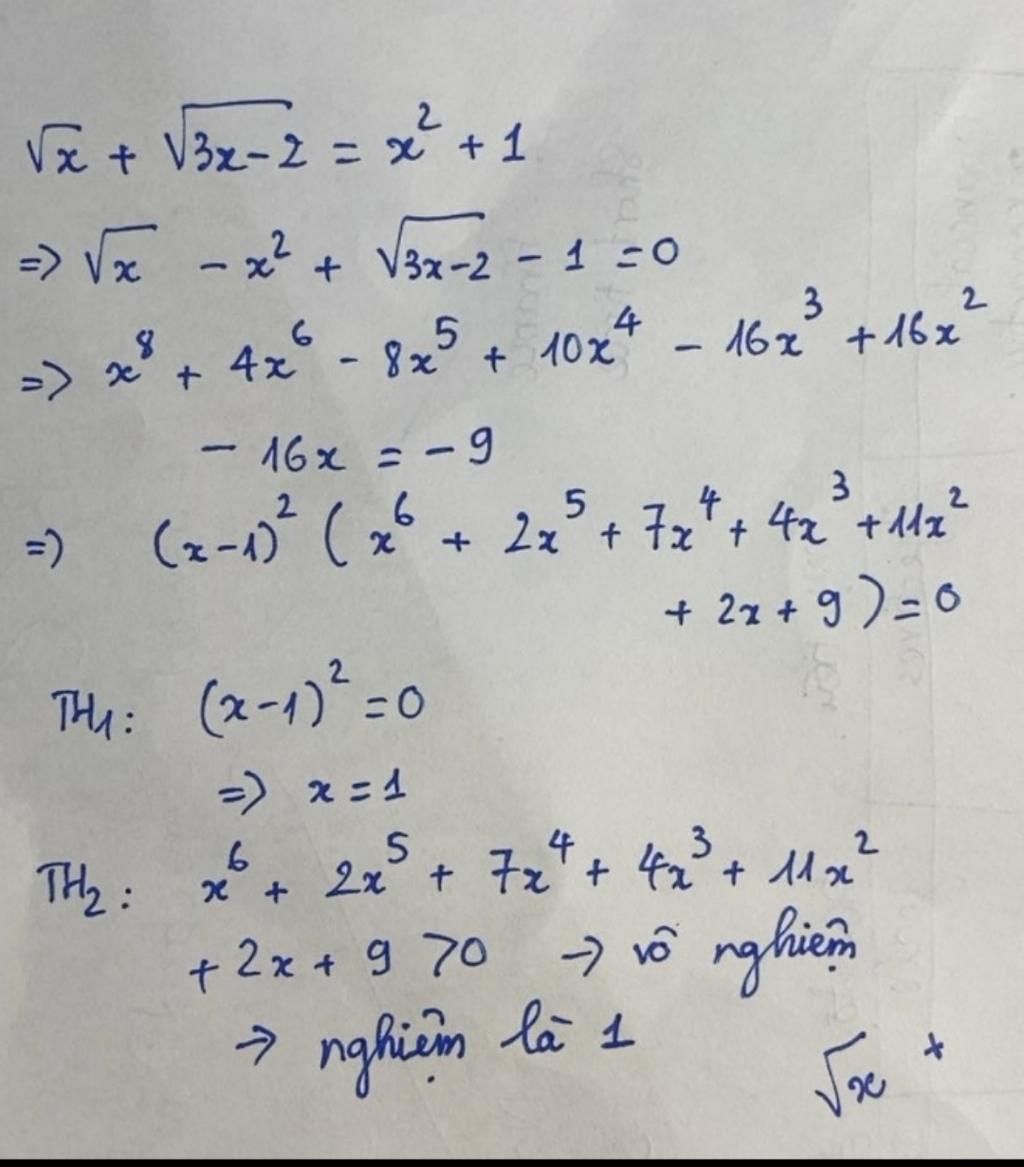 √x + √(3x-2) = x² + 1
=> √x - x² + √(3x-2) - 1 = 0
=> x⁸ + 4x⁶ - 8x⁵ + 10x⁴ - 16x³ + 16x²
- 16x = -9
=> (x-1)² (x⁶ + 2x⁵ + 7x⁴ + 4x³ + 11x²
+ 2x + 9) = 0
TH1: (x-1)² = 0
=> x = 1
TH2: x⁶ + 2x⁵ + 7x⁴ + 4x³ + 11x²
+ 2x + 9 > 0 → vô nghiệm
→ nghiệm là 1
√x +